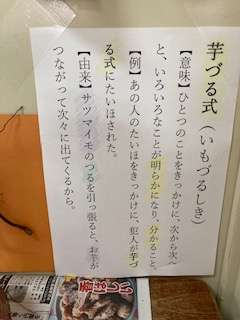 芋づる式（いもづるしき）
【意味】ひとつのことをきっかけに、次から次へ
と、いろいろなことが明らかになり、分かること。
【例】あの人のたいほをきっかけに、犯人が芋づ
る式にたいほされた。
【由来】サツマイモのつるを引っ張ると、お芋が
つながって次々に出てくるから。